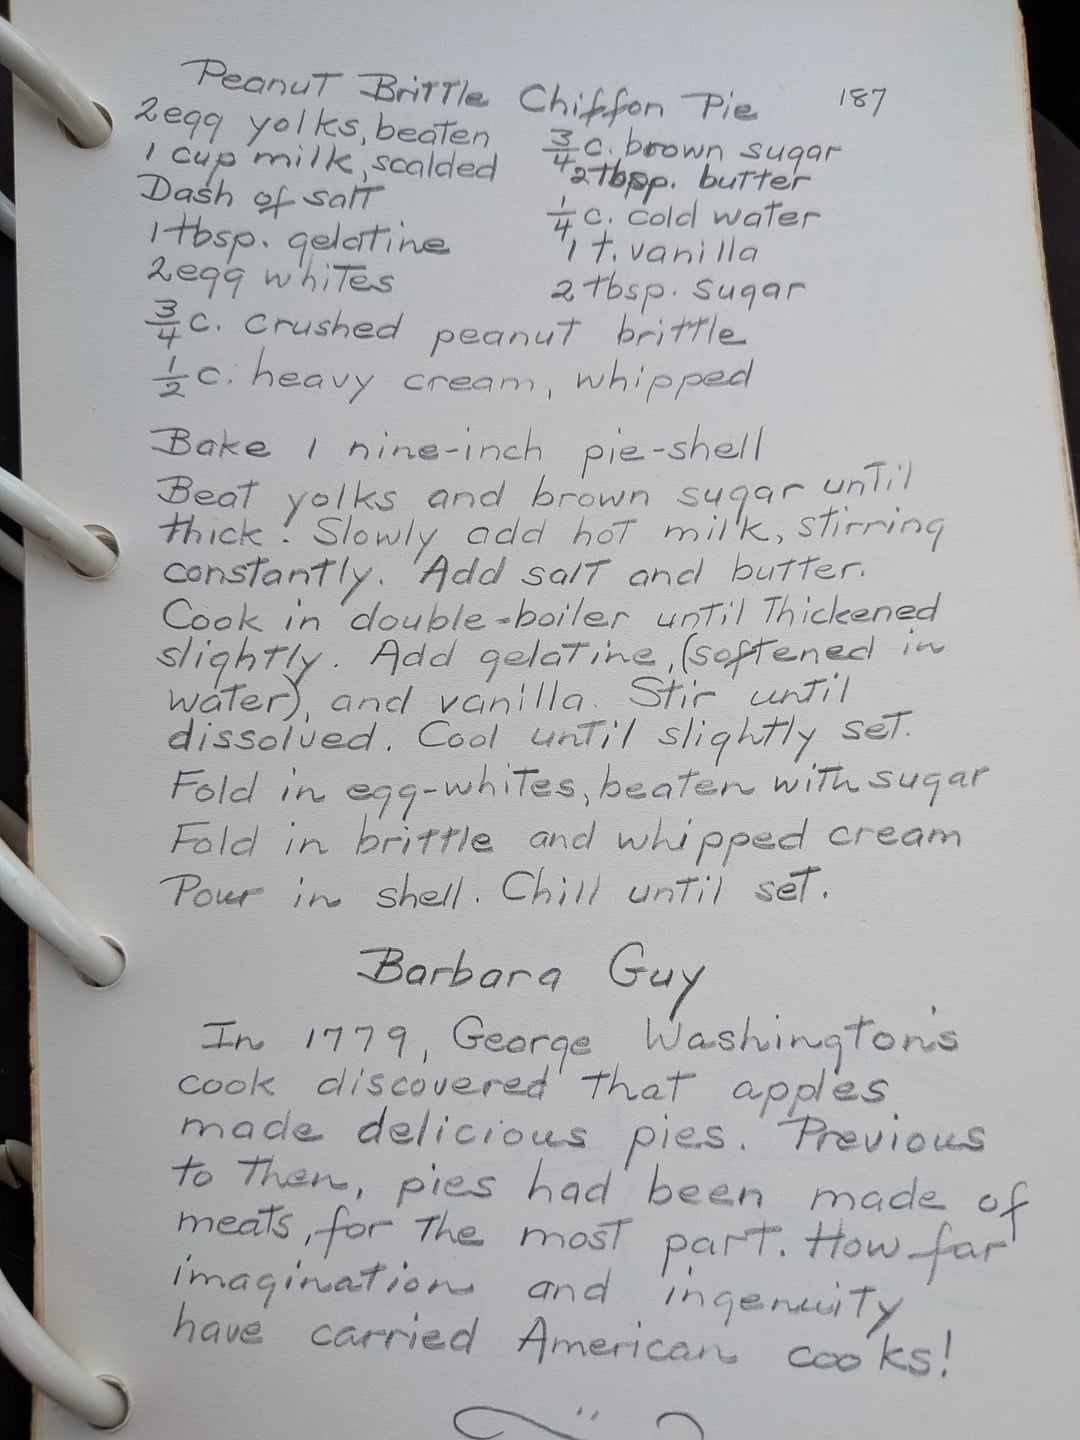 Peanut Brittle Chiffon Pie 187
2 egg yolks, beaten 3/4 c. brown sugar
1 cup milk, scalded 2 tbsp. butter
Dash of salt 1/4 c. cold water
1 tbsp. gelatine 1 t. vanilla
2 egg whites 2 tbsp. sugar
3/4 c. crushed peanut brittle
1/2 c. heavy cream, whipped
Bake 1 nine-inch pie-shell
Beat yolks and brown sugar until
thick. Slowly add hot milk, stirring
constantly. Add salt and butter.
Cook in double-boiler until Thickened
slightly. Add gelatine, (softened in
water), and vanilla. Stir until
dissolved. Cool until slightly set.
Fold in egg-whites, beaten with sugar
Fold in brittle and whipped cream
Pour in shell. Chill until set.
Barbara Guy
In 1779, George Washington's
cook discovered that apples
made delicious pies. Previous
to Then, pies had been made of
meats, for The most part. How far
imagination and ingenuity
have carried American cooks!